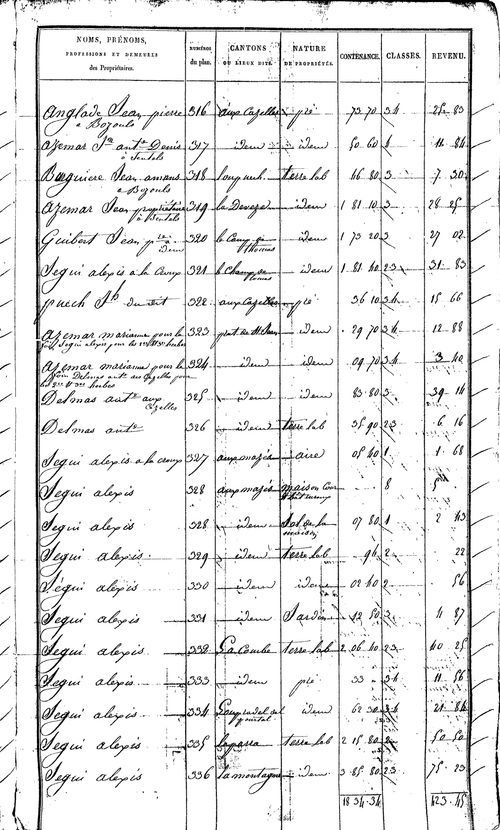 NOMS, PRÉNOMS, PROFESSIONS ET DEMEURES des Propriétaires. | NUMÉROS du plan. | CANTONS OU LIEUX DITS. | NATURE DE PROPRIÉTÉS. | CONTENANCE. | CLASSES. | REVENU.
Anglade Jean pierre a Bozouls 316 aux Cazelles pré 73 70 3 4 25 83
azemar Jn antne Denis 317 idem idem 50 60 11 84
Burguiere Jean amans a Bozouls 318 terre lab 66 80 3 7 30
azemar Jean propriétaire 319 le Deveze idem 1 81 10 3 28 25
Guibert Jean pre a idem 320 idem 1 73 20 3 27 02
Segui alexis a la Croux 321 le Champ idem 1 81 40 2 3 31 83
puech Jh 322 aux Cazelles pré 36 10 3 4 15 66
azemar marianne pour la 323 idem 29 70 3 4 12 88
Segui alexis pour les
azemar marianne pour la 324 idem idem 09 70 3 4 3 40
Delmas antne aux Cazelles pour
Delmas antne aux Cazelles 325 idem idem 83 80 3 39 14
Delmas antne 326 idem terre lab 35 90 2 3 6 16
Segui alexis a la croux 327 aux mazis aire 05 40 1 1 68
Segui alexis 328 aux mazis maison Cour 8
Segui alexis 328 idem Sol de la maison 07 80 1 2 43
Segui alexis 329 idem terre lab 96 2 22
Segui alexis 330 idem idem 02 40 2 56
Segui alexis 331 idem Jardin 12 50 3 4 87
Segui alexis 332 La Combe terre lab 2 06 40 2 3 40 25
Segui alexis 333 idem pré 33 3 4 11 56
Segui alexis 334 idem 62 30 3 4 21 84
Segui alexis 335 laparra terre lab 2 15 80 2 50 50
Segui alexis 336 la montagne idem 3 85 80 2 3 75 23
18 34 34 423 45